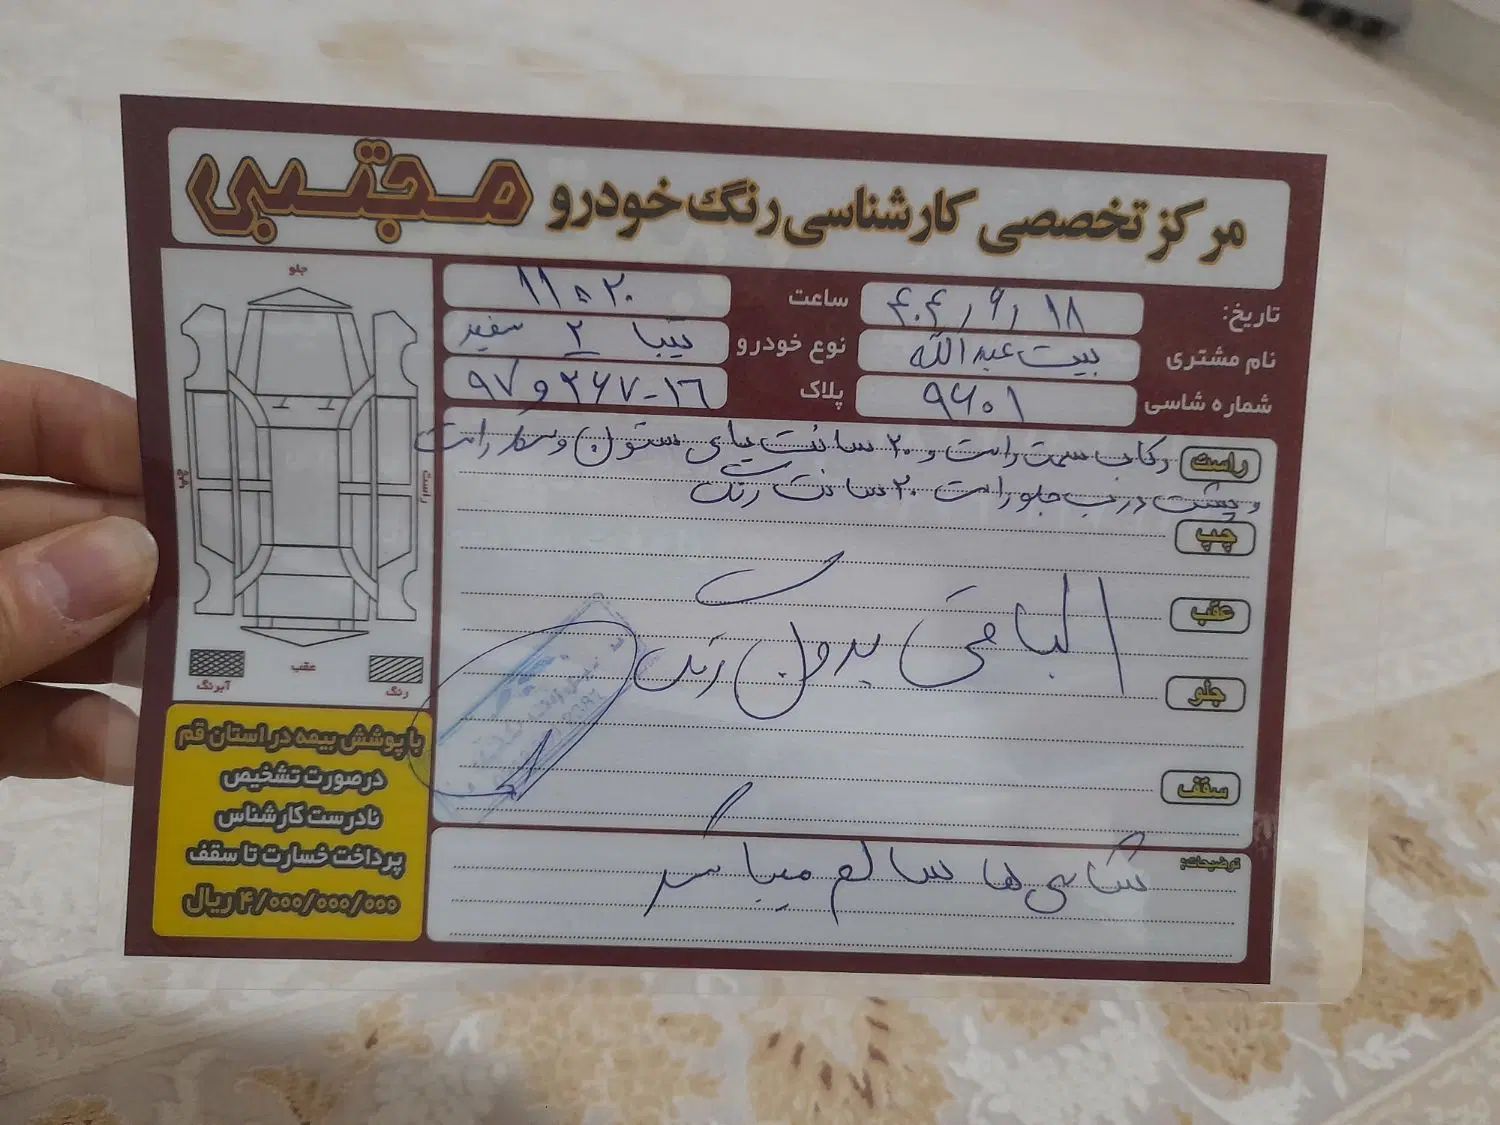 مرکز تخصصی کارشناسی رنگ خودرو مجتبی
تاریخ: ۴۰۴٫۹٫۱۸ ساعت ۱۱:۲۰
نام مشتری بیت عبدالله نوع خودرو تیبا ۲ سفید
شماره شاسی ۹۶۰۱ پلاک ۱۶-۲۶۷و۹۷
راست رکاب سمت راست و ۲۰ سانت پای ستون وسط راست
و پشت درب جلو راست ۲۰ سانت رنگ
چپ
عقب
الباقی بدون رنگ
جلو
سقف
توضیحات:
شاسی ها سالم میباشد
جلو
راست
چپ
عقب
رنگ
آبرنگ
با پوشش بیمه در استان قم
درصورت تشخیص
نادرست کارشناس
پرداخت خسارت تا سقف
۴/۰۰۰/۰۰۰/۰۰۰ ریال